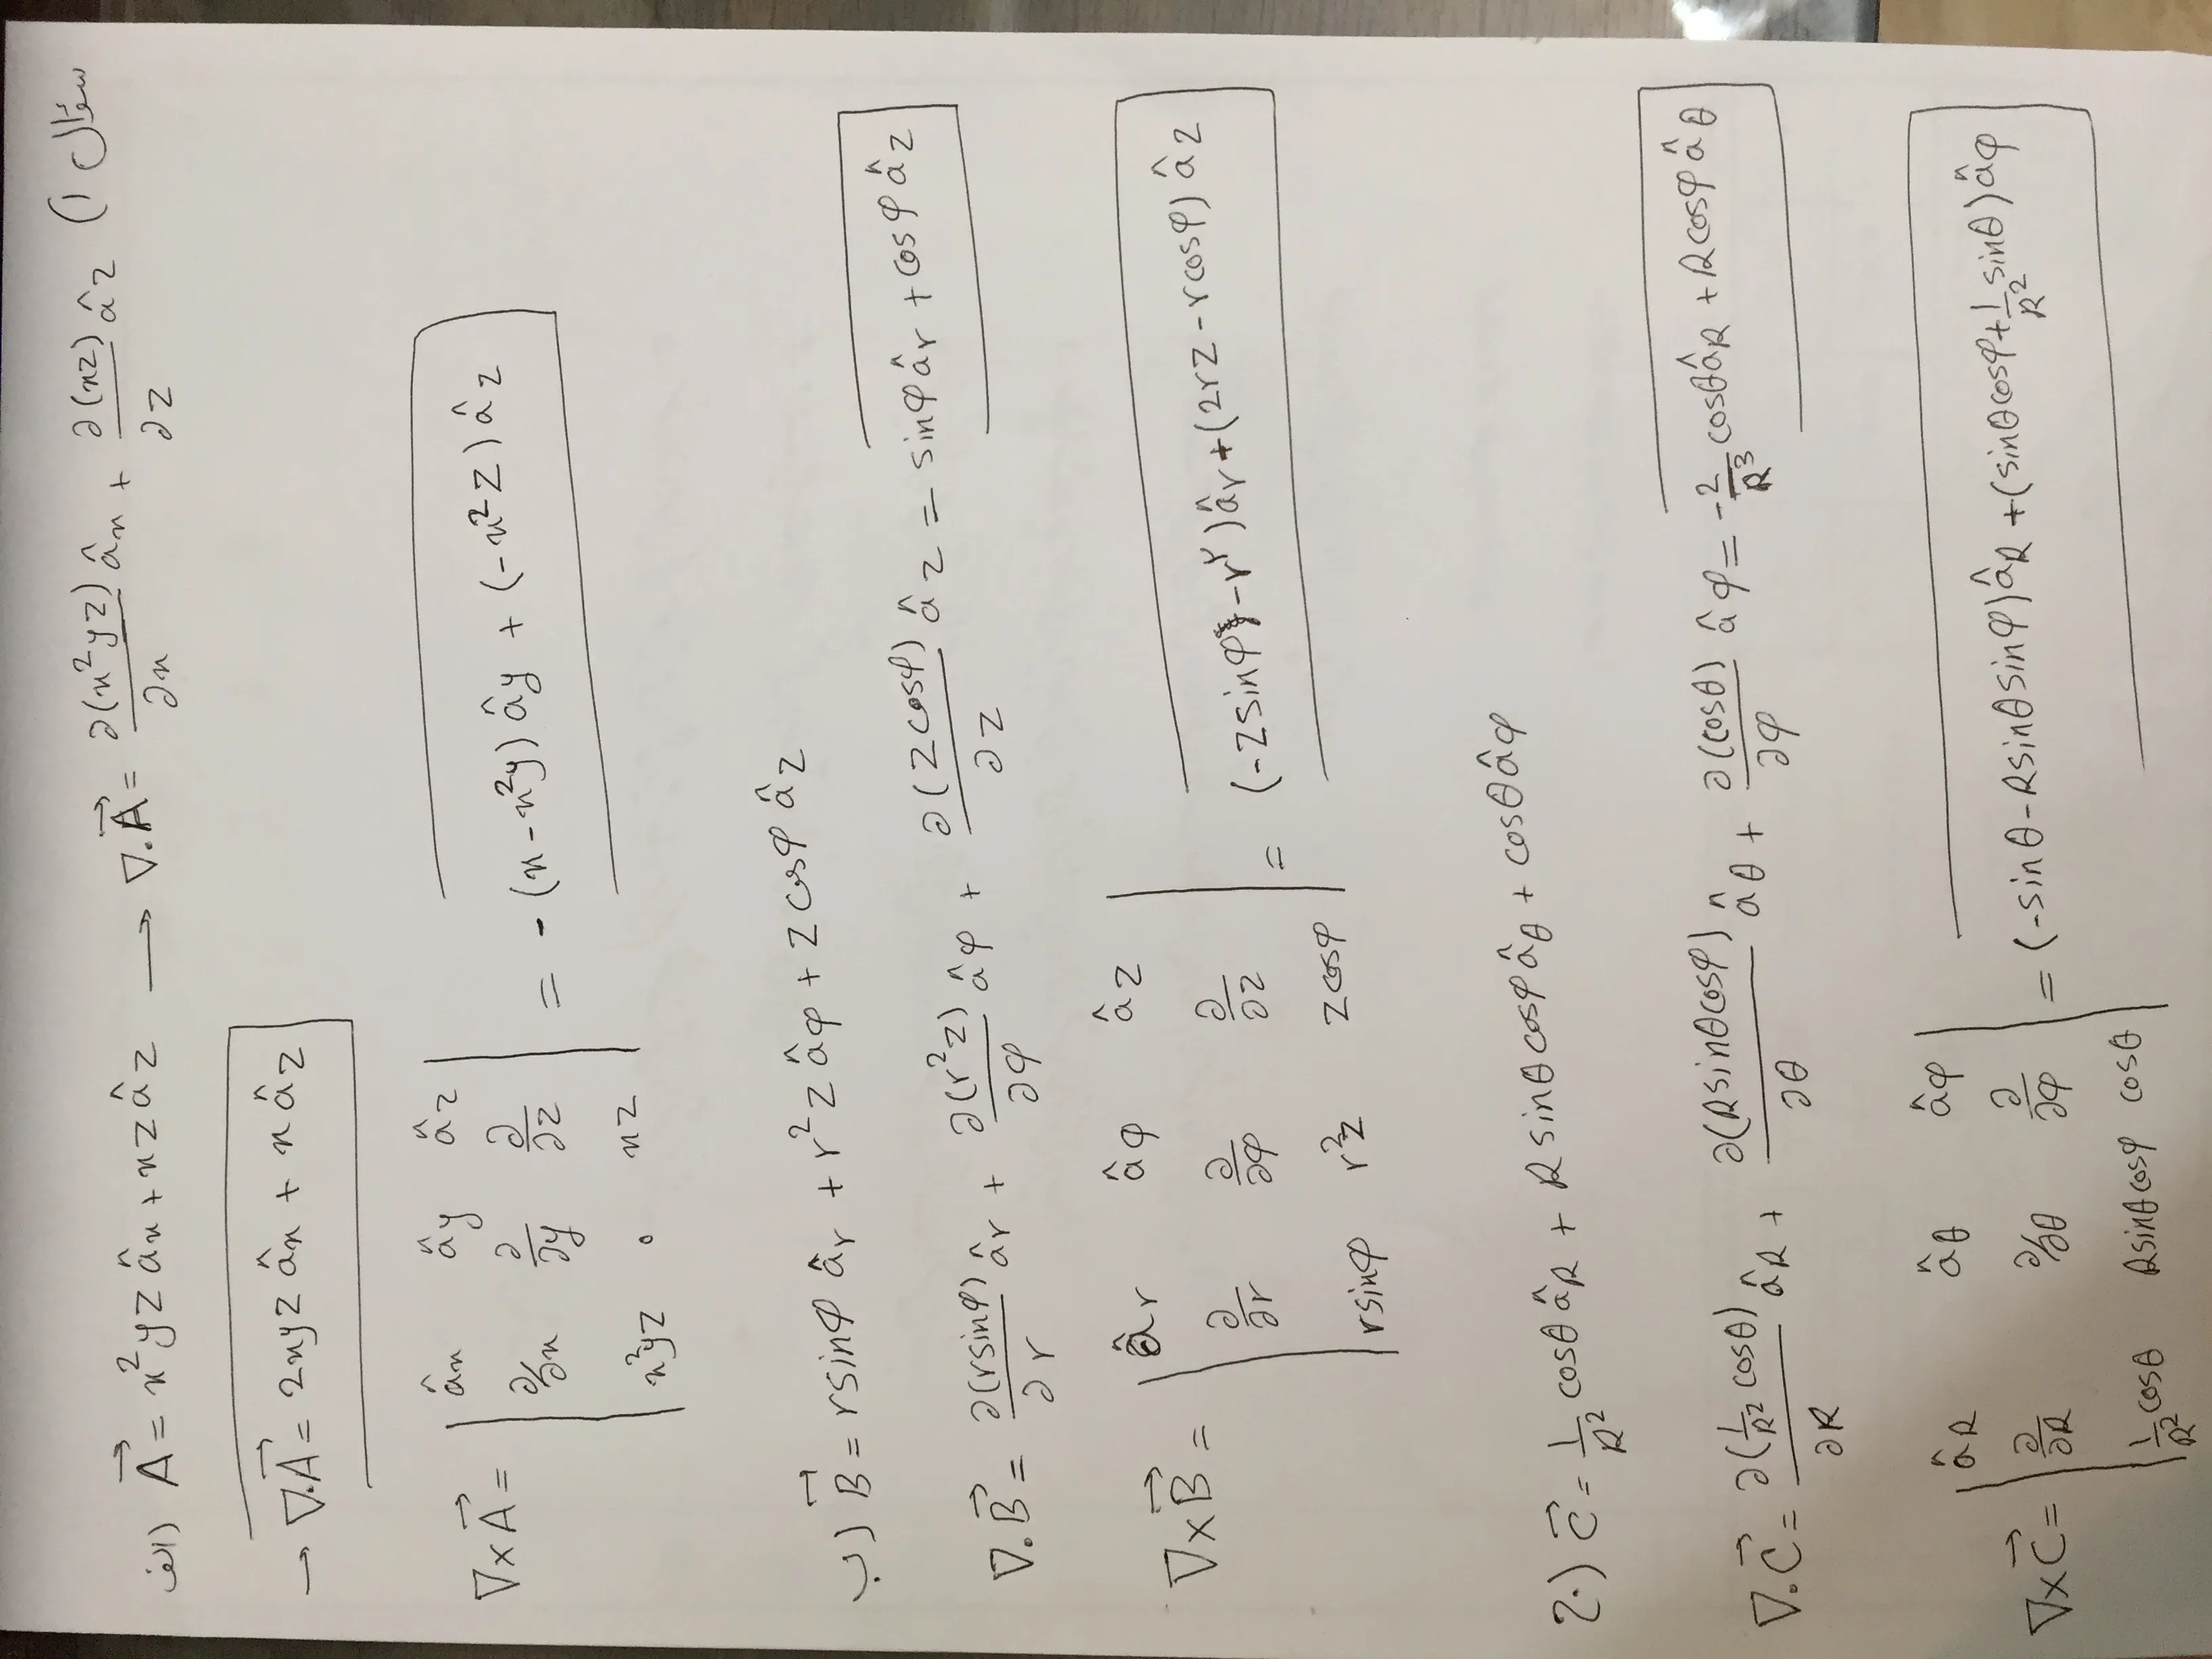 سوال 1)
الف) A⃗ = x²yz âx + xz âz → ∇.A⃗ = ∂(x²yz)/∂x âx + ∂(xz)/∂z âz
→ ∇.A⃗ = 2xyz âx + x âz
∇×A⃗ = | âx ây âz
∂/∂x ∂/∂y ∂/∂z
x²yz 0 xz | = -(x-x²y) ây + (-x²z) âz
ب) B⃗ = rsinφ âr + r²z âφ + z cosφ âz
∇.B⃗ = ∂(rsinφ)/∂r âr + ∂(r²z)/∂φ âφ + ∂(z cosφ)/∂z âz = sinφ âr + cosφ âz
∇×B⃗ = | âr âφ âz
∂/∂r ∂/∂φ ∂/∂z
rsinφ r²z zcosφ | = (-zsinφ-r²) âr + (2rz-rcosφ) âz
2.) C⃗ = 1/R² cosθ âR + R sinθ cosφ âθ + cosθ âφ
∇.C⃗ = ∂(1/R² cosθ)/∂R âR + ∂(Rsinθcosφ)/∂θ âθ + ∂(cosθ)/∂φ âφ = -2/R³ cosθ âR + Rcosφ âθ
∇×C⃗ = | âR âθ âφ
∂/∂R ∂/∂θ ∂/∂φ
1/R² cosθ Rsinθcosφ cosθ | = (-sinθ-Rsinθsinφ) âR + (sinθcosφ+1/R² sinθ) âφ